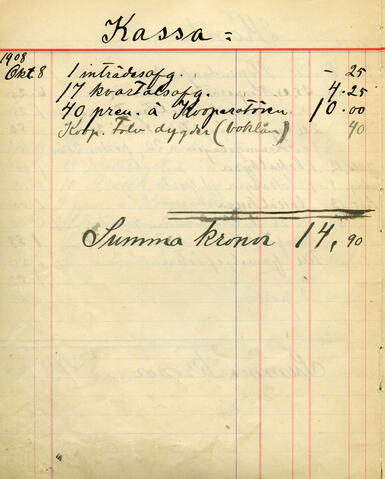 Kassa =
1908
Okt. 8 1 inträdesafg. – 25
17 kvartalsafg. 4.25
40 pren. å Kooperatören. 10.00
Koop. Tolv dygder (boklån) 40
Summa kronor 14,90